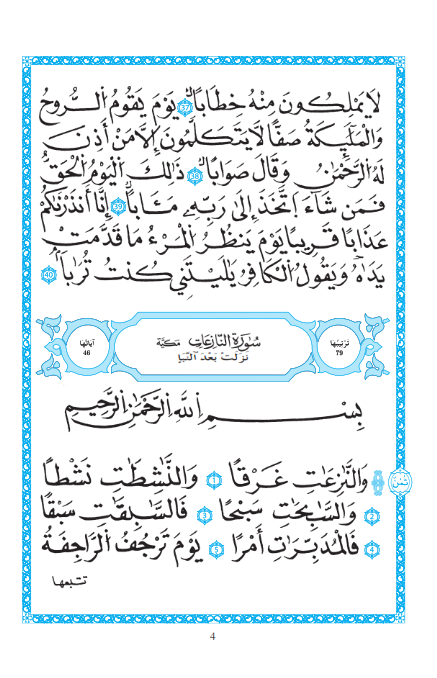 لَا يَمْلِكُونَ مِنْهُ خِطَابًا 37 يَوْمَ يَقُومُ الرُّوحُ
وَالْمَلَٰٓئِكَةُ صَفًّا لَا يَتَكَلَّمُونَ إِلَّا مَنْ أَذِنَ
لَهُ الرَّحْمَٰنُ وَقَالَ صَوَابًا 38 ذَٰلِكَ الْيَوْمُ الْحَقُّ
فَمَن شَآءَ اتَّخَذَ إِلَىٰ رَبِّهِۦ مَـَٔابًا 39 إِنَّا أَنذَرْنَٰكُمْ
عَذَابًا قَرِيبًا يَوْمَ يَنظُرُ الْمَرْءُ مَا قَدَّمَتْ
يَدَاهُ وَيَقُولُ الْكَافِرُ يَٰلَيْتَنِي كُنتُ تُرَٰبًا 40
تَرْتِيبُهَا 79 سُورَةُ النَّازِعَاتِ مَكِّيَّة آيَاتُهَا 46
نَزَلَتْ بَعْدَ النَّبَإِ
بِسْمِ اللَّهِ الرَّحْمَٰنِ الرَّحِيمِ
ثُمُن وَالنَّٰزِعَٰتِ غَرْقًا 1 وَالنَّٰشِطَٰتِ نَشْطًا
2 وَالسَّٰبِحَٰتِ سَبْحًا 3 فَالسَّٰبِقَٰتِ سَبْقًا
4 فَالْمُدَبِّرَٰتِ أَمْرًا 5 يَوْمَ تَرْجُفُ الرَّاجِفَةُ
تتبعها
4